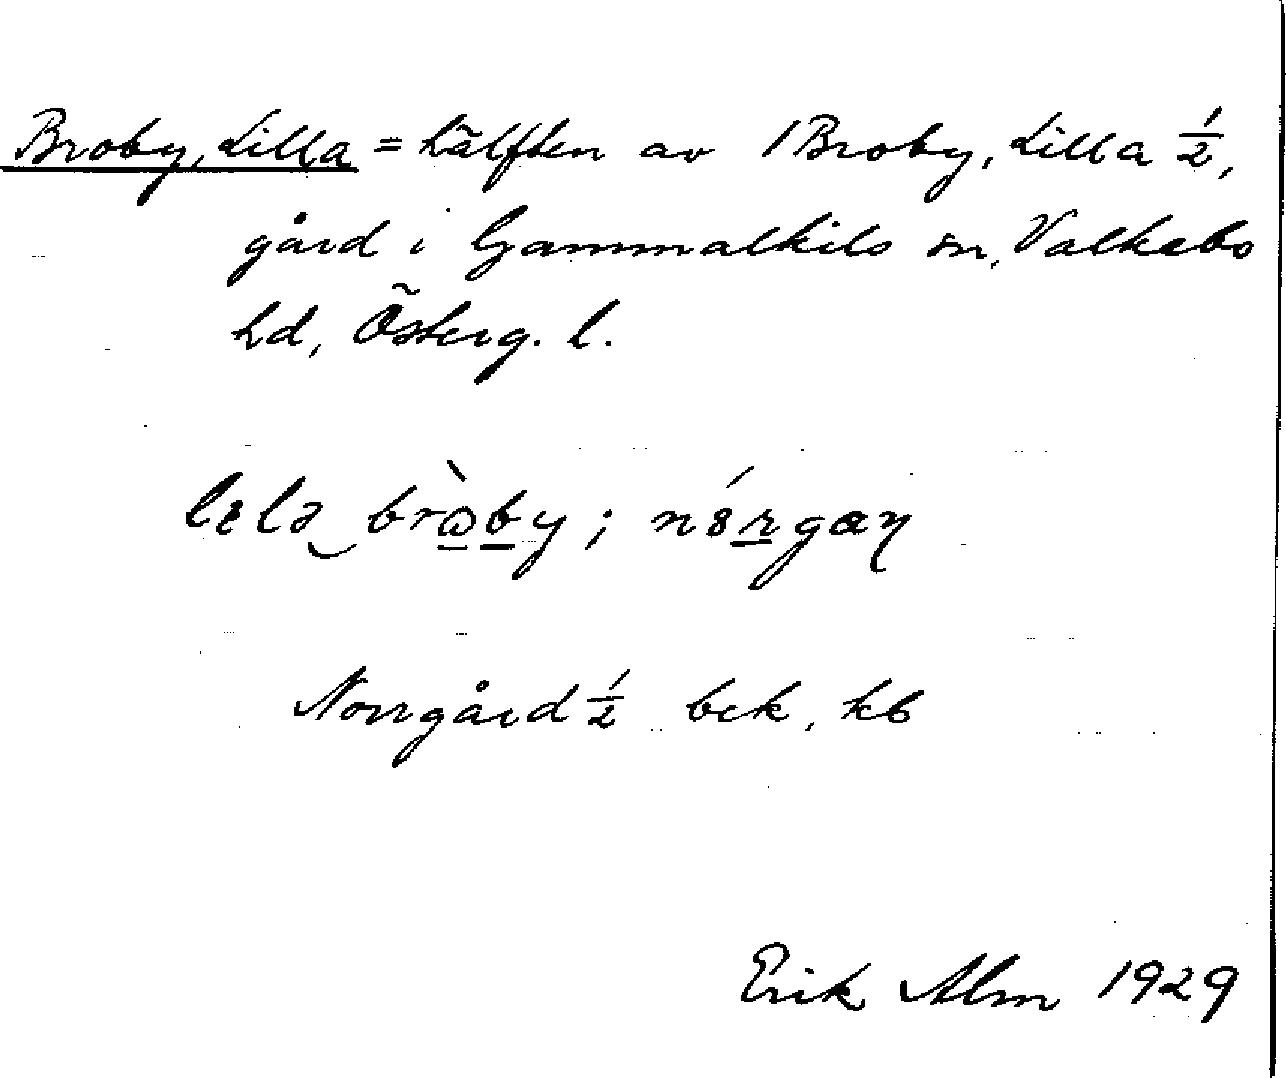 Broby, Lilla = hälften av 1 Broby, Lilla ½,
gård i Gammalkils sn, Valkebo
hd, Österg. l.
Norrgård ½ bek, kb
Erik Alm 1929